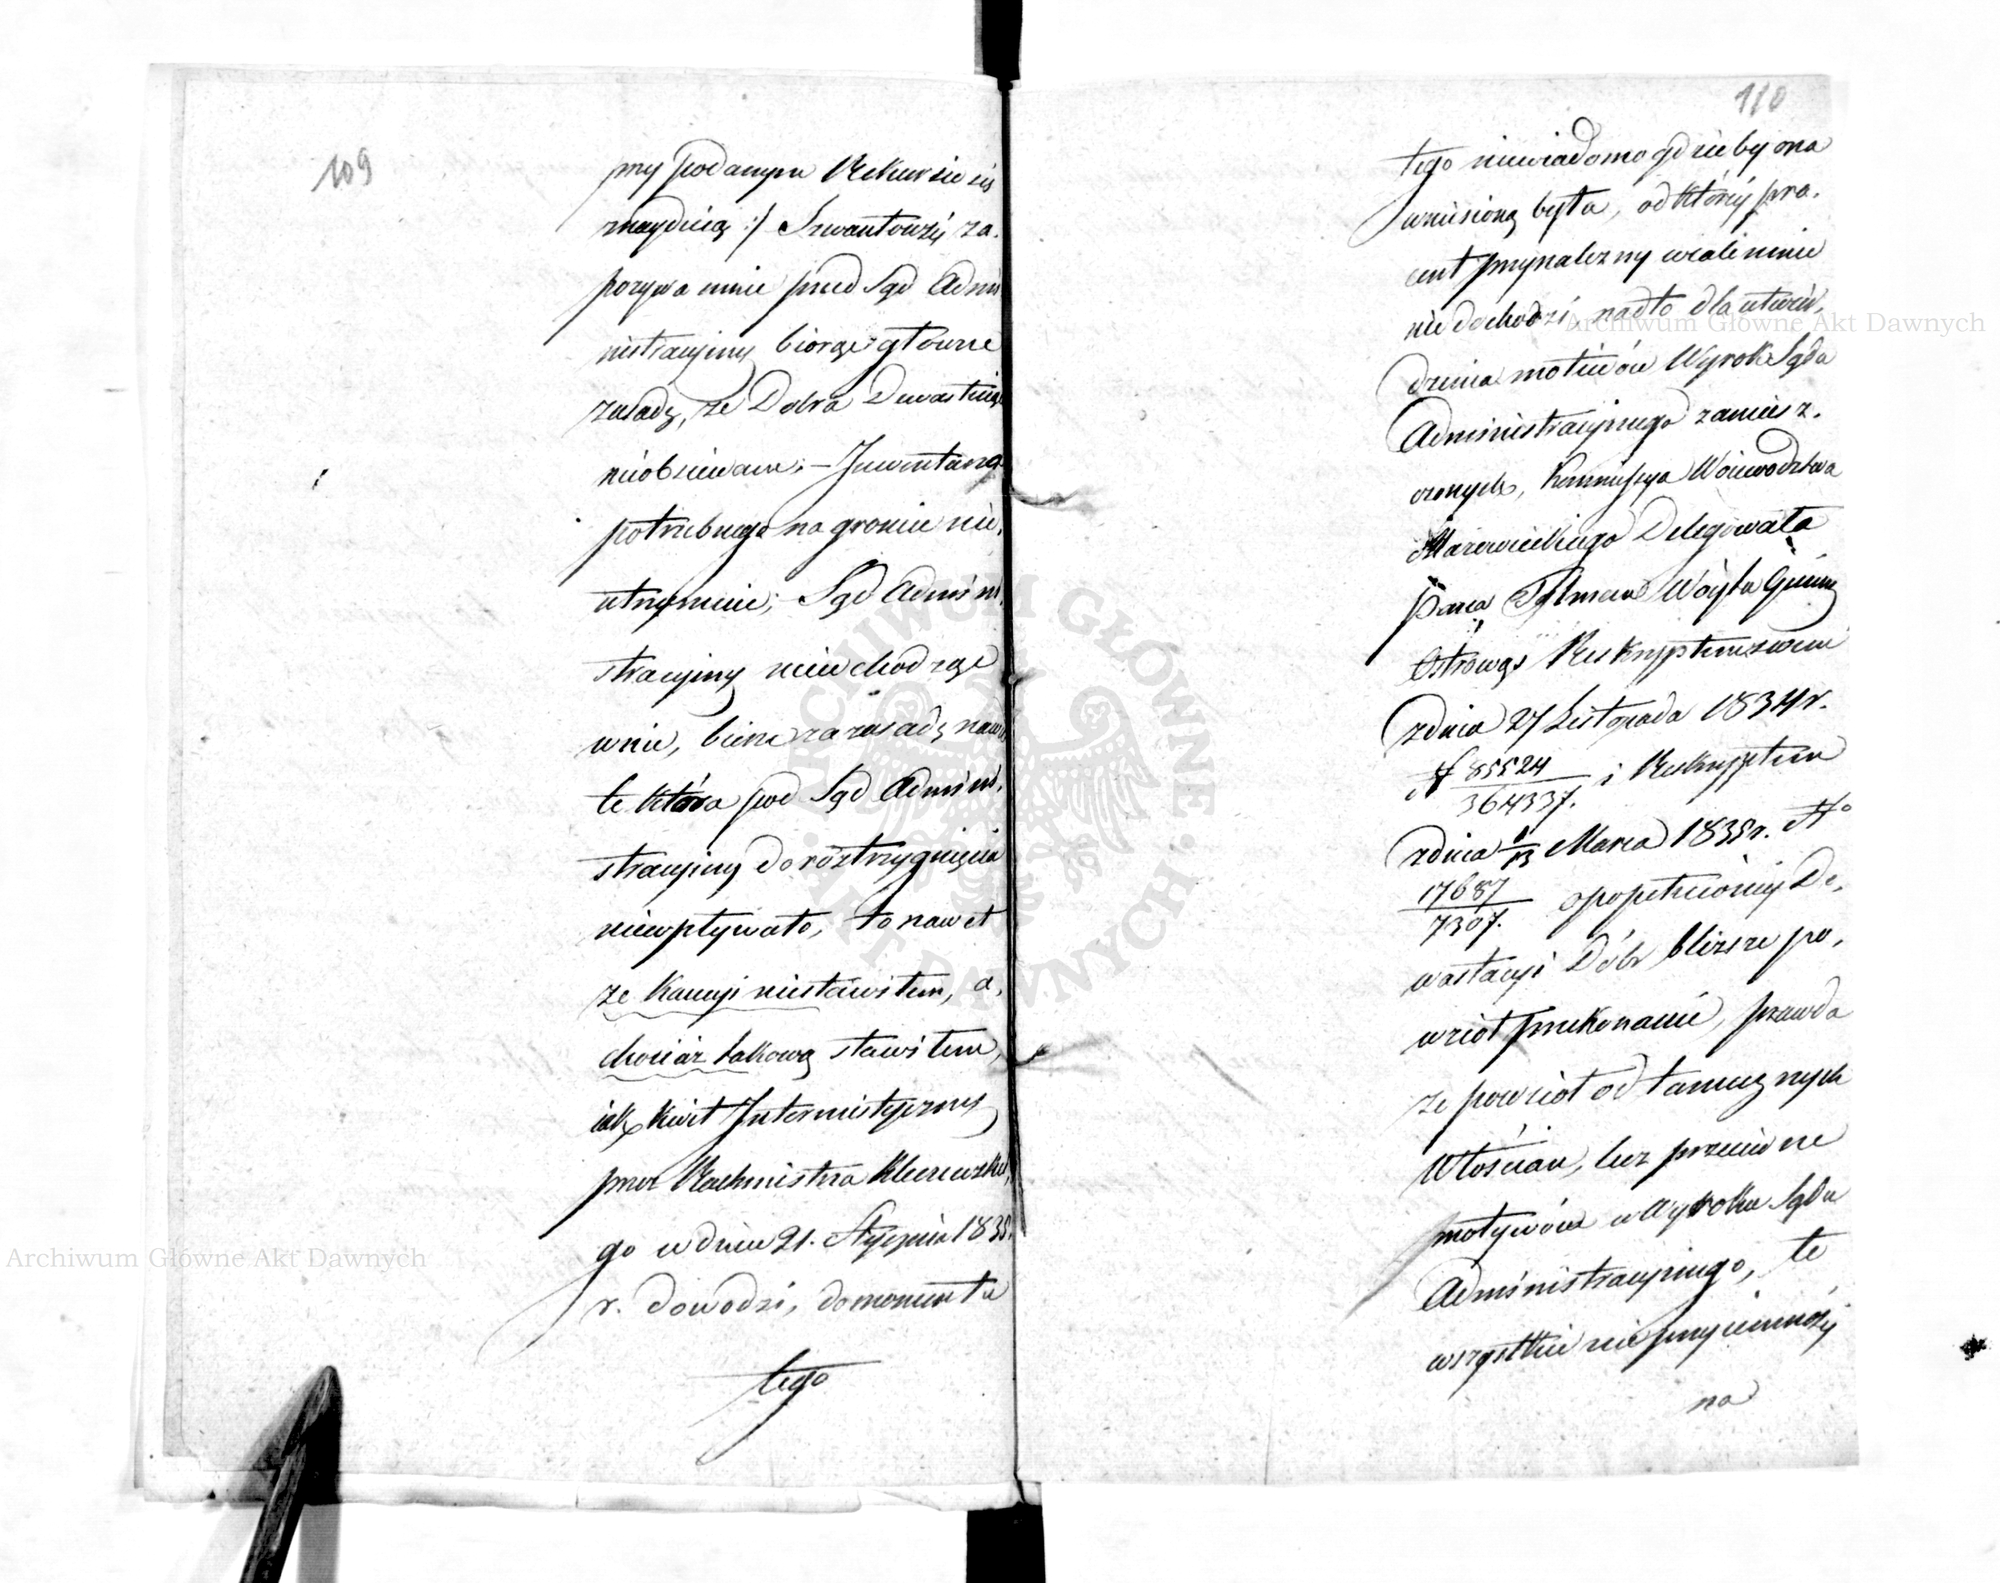 109
przy podanym Rekursie się
znaydzią :/ Szwantowzki za,
pozywa mnie przed Sąd Admi
nistracyjny biorąc główne
zasadę, że Dobra Dewastuję
nieobsiewam; – Inwentarza
potrzebnego na groncie nie,
utrzymuie; – Sąd Admini,
stracyjny nie wchodząc
w nie, bierze za zasadę nawet
te która pod Sąd Admini,
stracyjny do rozstrzygnięcia
niewpływało, to nawet
że Kaucyi niestawiłem, a,
chociaż takową stawiłem,
iak kwit Intermistyczny
przez Rachmistrza
go w dniu 21. Stycznia 1835.
r. dowodzi, do momentu
tego
110
tego niewiadomo gdzieby ona
wniesioną była, od któréy pro,
cent przynależny wcale mnie
nie dochodzi, nadto dla utwier,
dzenia motiwów Wyrok Sąda
Administracyjnego zamiesz,
czonych, Kommissya Woiewodztwa
Mazowieckiego Delegowała
Pana Tylman Wóyta Gminy
Ostrowąs Reskryptem swem
z dnia 27 Listopada 1834 r.
№ 85524/364337. i Reskryptem
z dnia 1/13 Marca 1835 r. №
17687/7307. o popełnionéy De,
wastacyi Dóbr bliższe po,
wziął przekonanie, prawda
że powziął od tamecznych
Włościan, lecz przeciwne
motywów w Wyroku Sądu
Administracyinego, te
wszystkie nieprzyiemnośći
na
Archiwum Główne Akt Dawnych
Archiwum Główne Akt Dawnych
ARCHIWUM GŁÓWNE · AKT DAWNYCH ·